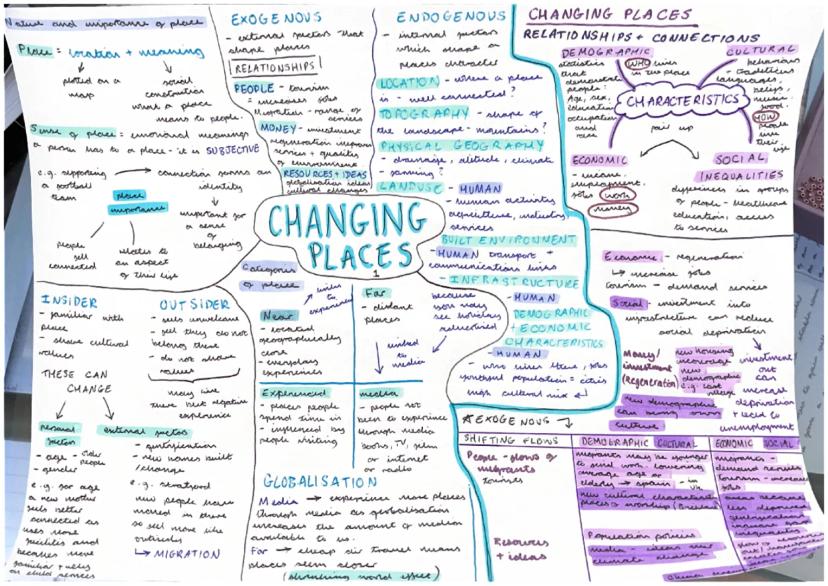 Nature and importance of place
Place = location + meaning
plotted on a map
social construction
what a place means to people.
Sense of place = emotional meanings
a person has to a place - it is SUBJECTIVE
e.g. supporting a football team
connection forms an identity
place importance
important for a sense of belonging
people feel connected
relates to an aspect of their life
INSIDER
- familiar with place
- share cultural values
OUTSIDER
- feels unwelcome
- feel they do not belong there
- do not share values
may have had negative experience
THESE CAN CHANGE
personal factors
- age - older people
- gender
e.g. for age
a new mother
feels better
connected as
uses more
facilities and
becomes more
familiar
external factors
- gentrification
- new homes built
/change
e.g. stratford
new people have
moved in there
so feel more like
outsiders
MIGRATION
EXOGENOUS
- external factors that
shape places
RELATIONSHIPS
PEOPLE - tourism
= increases jobs
migration - range of services
MONEY - investment
regeneration improves
services + quality
of environment
RESOURCES + IDEAS
globalisation ideas
cultural changes
ENDOGENOUS
- internal factors
which shape a
places character
LOCATION - where a place
is - well connected?
TOPOGRAPHY - shape of
the landscape - mountains?
PHYSICAL GEOGRAPHY
- drainage, altitude, climate
farming?
LANDUSE - HUMAN
- human activities
agriculture, industry
services
BUILT ENVIRONMENT
- HUMAN transport +
communications links
- INFRASTRUCTURE
- HUMAN
DEMOGRAPHIC
+ ECONOMIC
CHARACTERISTICS
- HUMAN
- who lives there, jobs
youthful population =
high cultural mix
CHANGING
PLACES
1
Categories of place
links to experienced
Near
- located
geographically
close
- everyday
experiences
Far
- distant places
linked to media
because you may see holidays
Experienced
- places people
spend time in
- influenced by
people visiting
media
- people not
been to experience
through media
books, TV, film
or internet
or radio
GLOBALISATION
Media → experience more places
through media as globalisation
increases the amount of media
available to us.
Far → cheap air travel means
places seem closer
(shrinking world effect)
CHANGING PLACES
RELATIONSHIPS + CONNECTIONS
DEMOGRAPHIC
statistics that demonstrate people:
Age, sex, education
occupation and race
WHO lives in the place
CULTURAL
behaviours
- traditions
languages,
beliefs,
music
food
HOW people live their life
CHARACTERISTICS
pair up
ECONOMIC
- income,
employment
jobs work
money
SOCIAL
INEQUALITIES
differences in groups
of people - healthcare
education, access
to services
Economic - regeneration
↳ increase jobs
tourism - demand services
Social - investment into
infrastructure can reduce
social deprivation
Money/
investment
(Regeneration)
new housing
encourage
new
demographic
e.g. east
village
investment/
out
can
increase
deprivation
+ lead to
unemployment
New demographic
can bring own
culture
*EXOGENOUS
SHIFTING FLOWS
DEMOGRAPHIC CULTURAL
ECONOMIC SOCIAL
People - flows of
migrants
tourists
migrants may be younger
to find work - lowering
average age or
elderly → spain - in UK
new cultural characteristics
places of worship
migrants -
demand services
tourism - increase
jobs
Resources
+ ideas
Population policies
media - ideas like
climate change